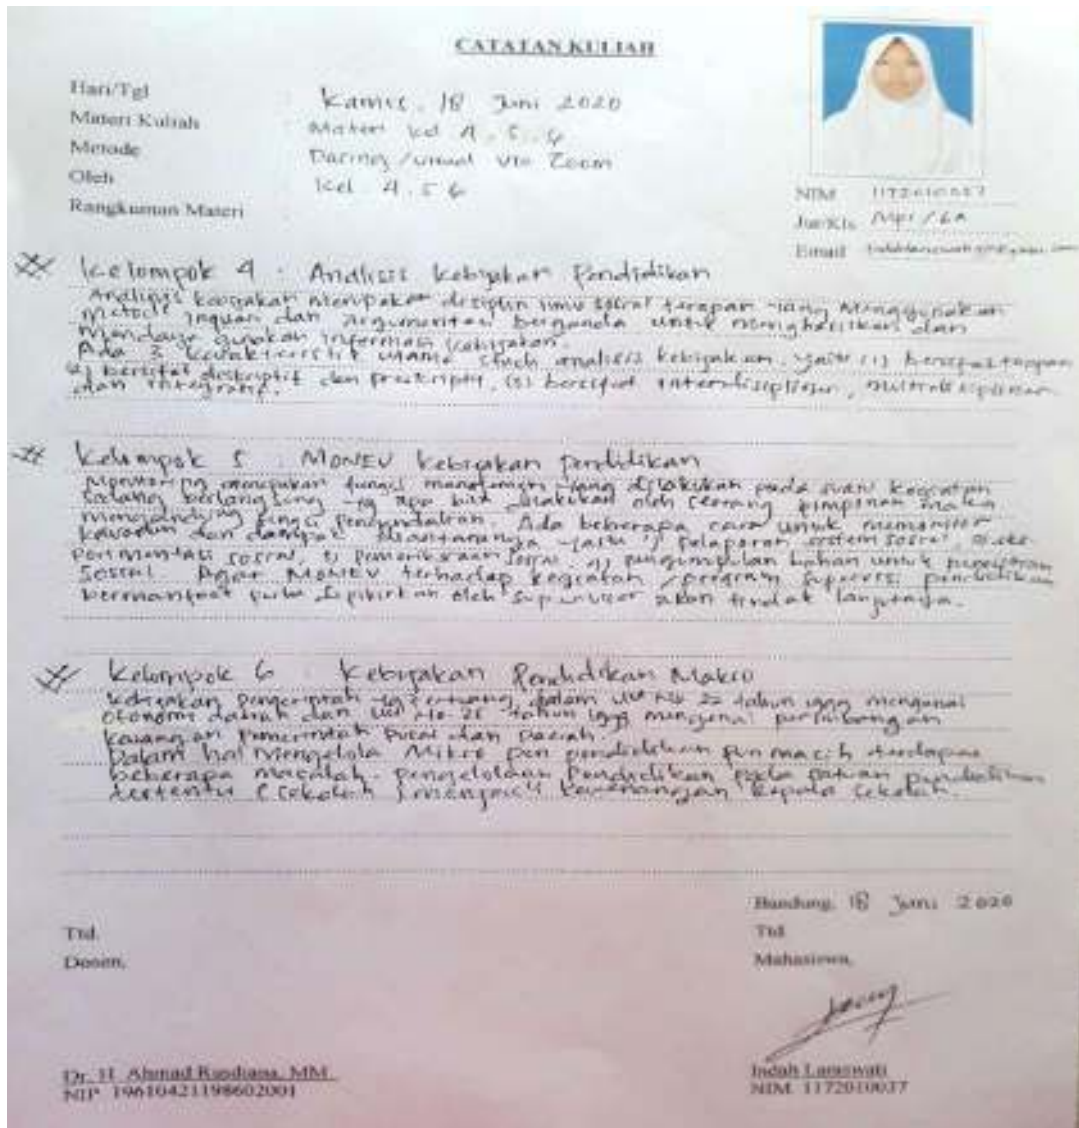 CATATAN KULIAH
Hari/Tgl : Kamis, 18 Juni 2020
Materi Kuliah : Materi kel 4.5.6
Metode : Daring / Via Zoom
Oleh : Kel 4.5 6
Rangkuman Materi
NIM 1172010037
Jur/Kls MPI / 6A
Email
Kelompok 4 : Analisis Kebijakan Pendidikan
Analisis kebijakan merupakan disiplin ilmu sosial terapan yang Menggunakan
Metode inquiri dan argumentasi berganda untuk menghasilkan dan
Mendaya gunakan informasi kebijakan.
Ada 3 karakteristik utama studi analisis kebijakan. yaitu (1) bersifat terapan
(2) bersifat deskriptif dan preskriptif, (3) bersifat interdisipliner, multidisipliner
dan integratif.
Kelompok 5 : MONEV Kebijakan Pendidikan
Monitoring merupakan fungsi manajemen yang dilakukan pada suatu kegiatan
sedang berlangsung yg apa bila dilakukan oleh seorang pimpinan maka
mengandung fungsi pengendalian. Ada beberapa cara untuk memonitor
dan dampak diantaranya yaitu 1) pelaporan sistem sosial
perimentasi sosial, 3) pemeriksaan sosial, 4) pengumpulan bahan untuk
Sosial. Agar MONEV terhadap kegiatan / program supervisi pendidikan
bermanfaat perlu dipikirkan oleh supervisor akan tindak lanjutnya.
Kelompok 6 : Kebijakan Pendidikan Makro
Kebijakan pemerintah yg tertuang dalam UU No 22 tahun 1999 mengenai
otonomi daerah dan UU No 25 tahun 1999 mengenai perimbangan
keuangan pemerintah pusat dan Daerah.
Dalam hal Mengelola Mikro pendidikan pun masih terdapat
beberapa masalah. pengelolaan pendidikan pada satuan pendidikan
tertentu (sekolah) menjadi kewenangan kepala sekolah.
Bandung, 18 Juni 2020
Ttd.
Dosen,
Ttd
Mahasiswa,
Dr. H. Ahmad Rusdiana, MM
NIP 196104211986021001
Indah Laraswati
NIM 1172010037